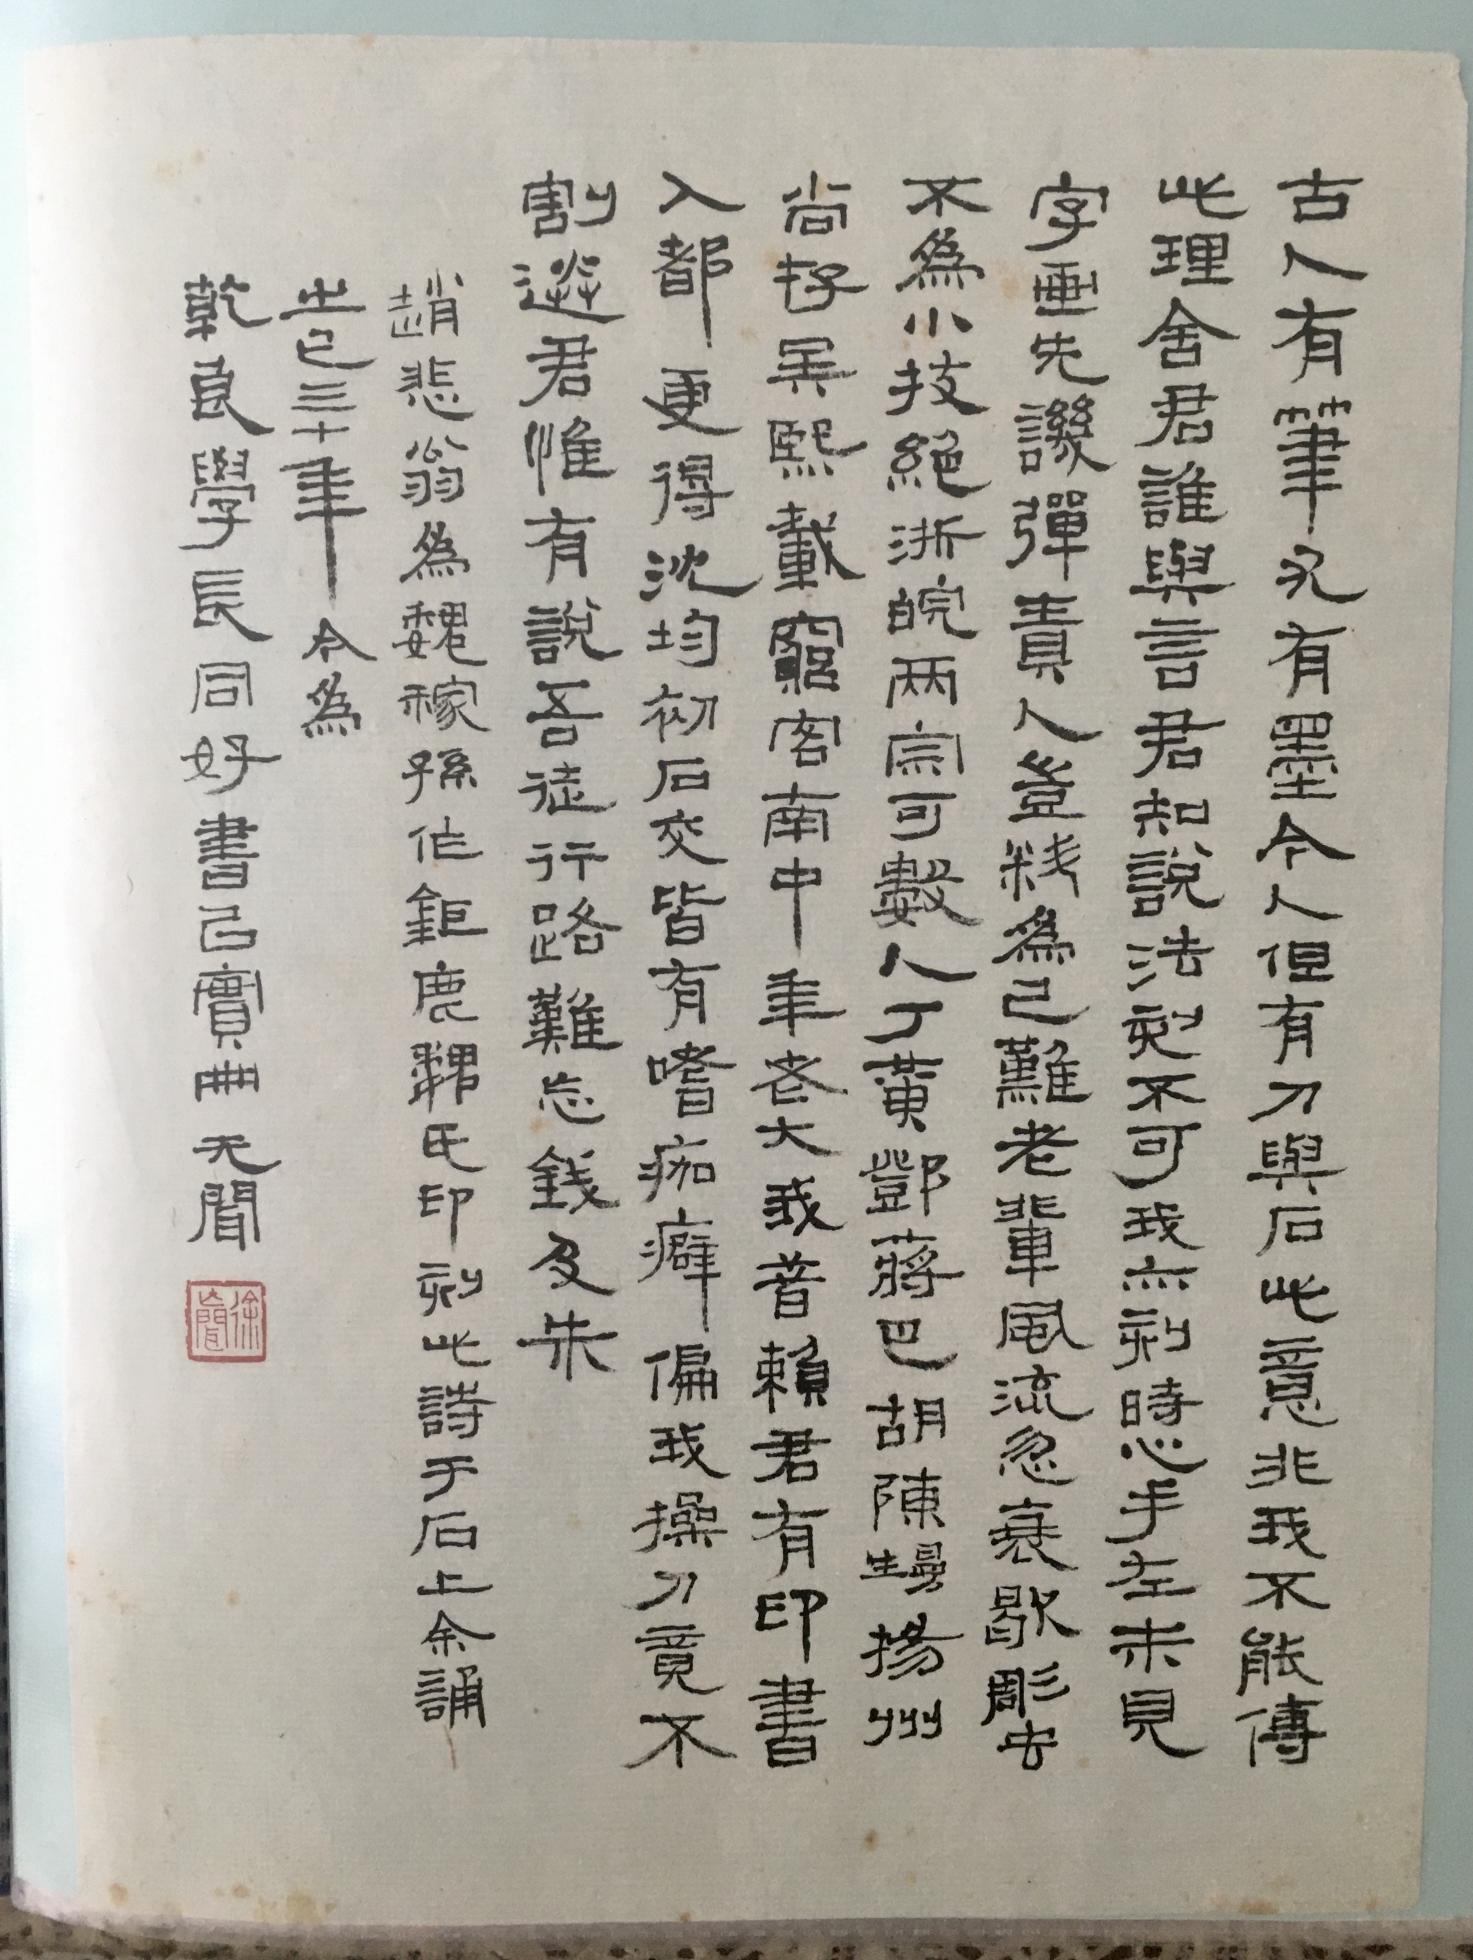 古人有筆尤有墨今人但有刀與石此意非我不能傳
此理舍君誰與言君知說法刻不可我亦刻時心手左未見
字畫先譏彈責人豈殘為己難老輩風流忽衰歇彫虫
不為小技絕浙皖兩宗可數人丁黃鄧蔣巴胡陳曼生揚州
尚存吳熙載窮客南中年老大我昔賴君有印書
入都更得沈均初石交皆有嗜痂癖偏我操刀竟不
割送君惟有說吾徒行路難忘錢及朱
趙悲翁為魏稼孫作鉅鹿魏氏印刻此詩于石上余誦
之已三十年今為
乾良學長同好書已實典 无聞
徐无聞